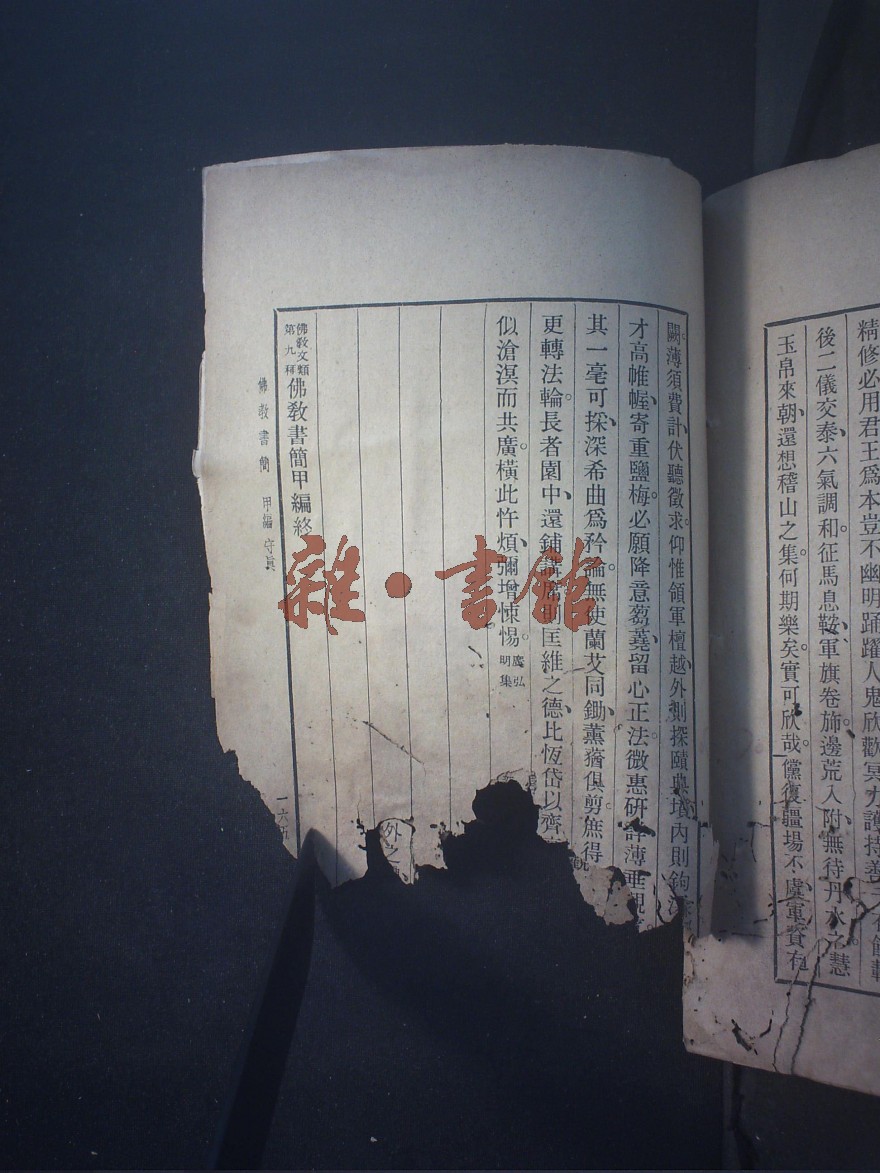 精修必用君王爲本豈不幽明踊躍人鬼欣歡冥力護持善
後二儀交泰六氣調和征馬息鞍軍旗卷斾邊荒入附無待丹水之慧
玉帛來朝還想稽山之集何期樂矣實可欣哉儻復疆場不虞軍資有
闕薄須費計伏聽徵求仰惟領軍檀越外測探賾典墳內則鉤深
才高帷幄寄重鹽梅必願降意蒭蕘留心正法微惠研詳薄垂觀
其一毫可採深希曲爲矜論無使蘭艾同鋤薰蕕俱剪庶得
更轉法輪長者園中還鋪講席則匡維之德比恆岱以齊
似滄溟而共廣橫此忤煩彌增悚惕廣弘明集
外之
佛教文類第九種佛教書簡甲編終
佛教書簡 甲編 守眞
一六五
雜·書館